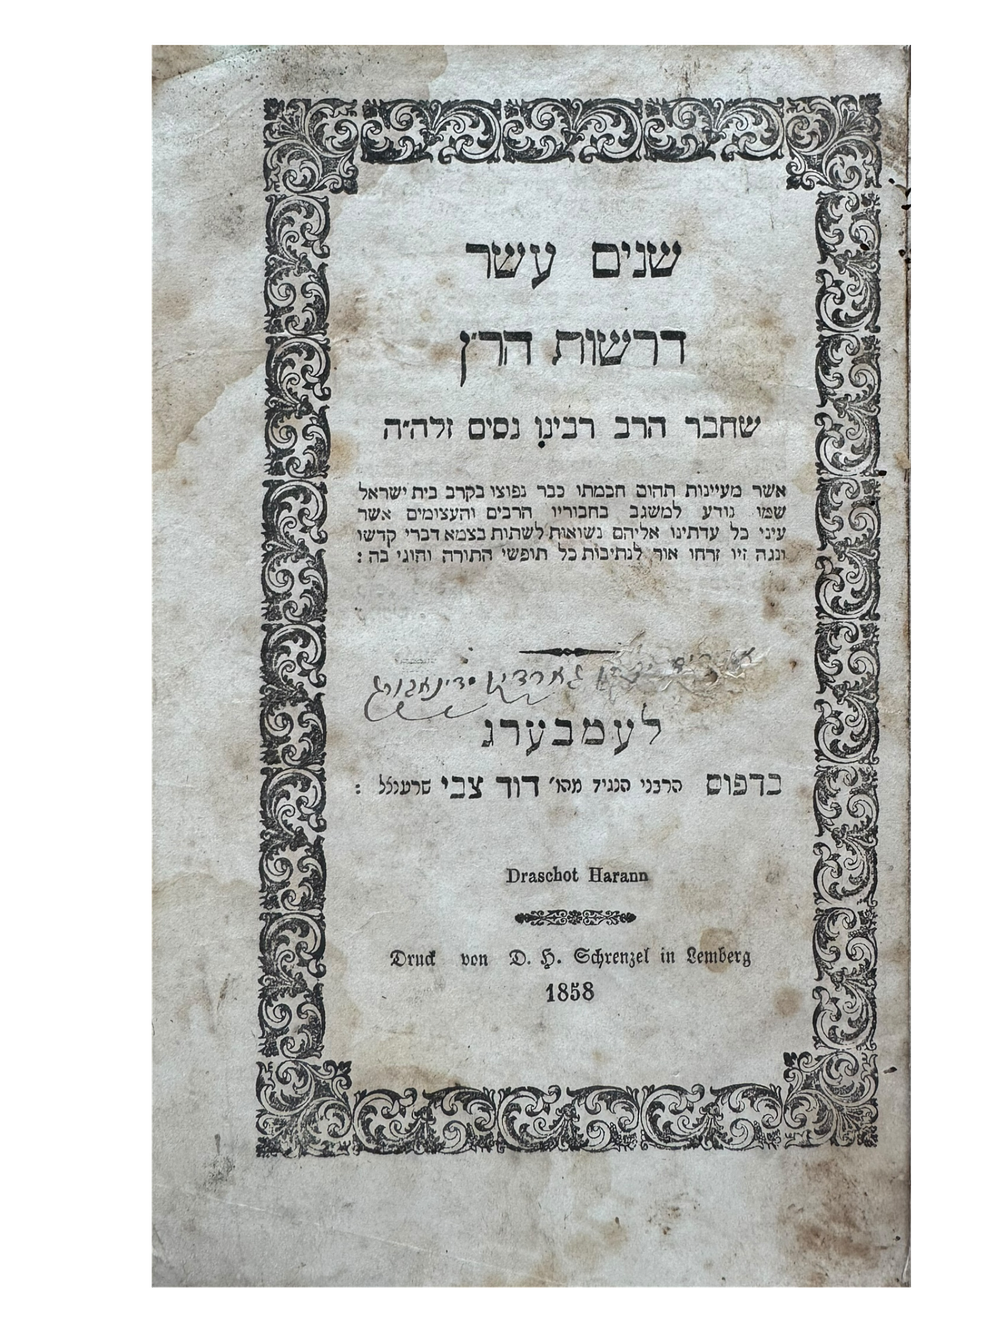 שנים עשר
דרשות הר״ן
שחבר הרב רבינו נסים זלה״ה
אשר מעיינות תהום חכמתו כבר נפוצו בקרב בית ישראל
שמו נודע למשגב בחבוריו הרבים והעצומים אשר
עיני כל עדתינו אליהם נשואות לשתות בצמא דברי קדשו
ונגה זיו זרחו אור לנתיבות כל תופשי התורה והוגי בה :
לעמבערג
בדפוס הרבני הנגיד מהו׳ דוד צבי שרענצל :
Draschot Harann
Druck von D. H. Schrenzel in Lemberg
1858